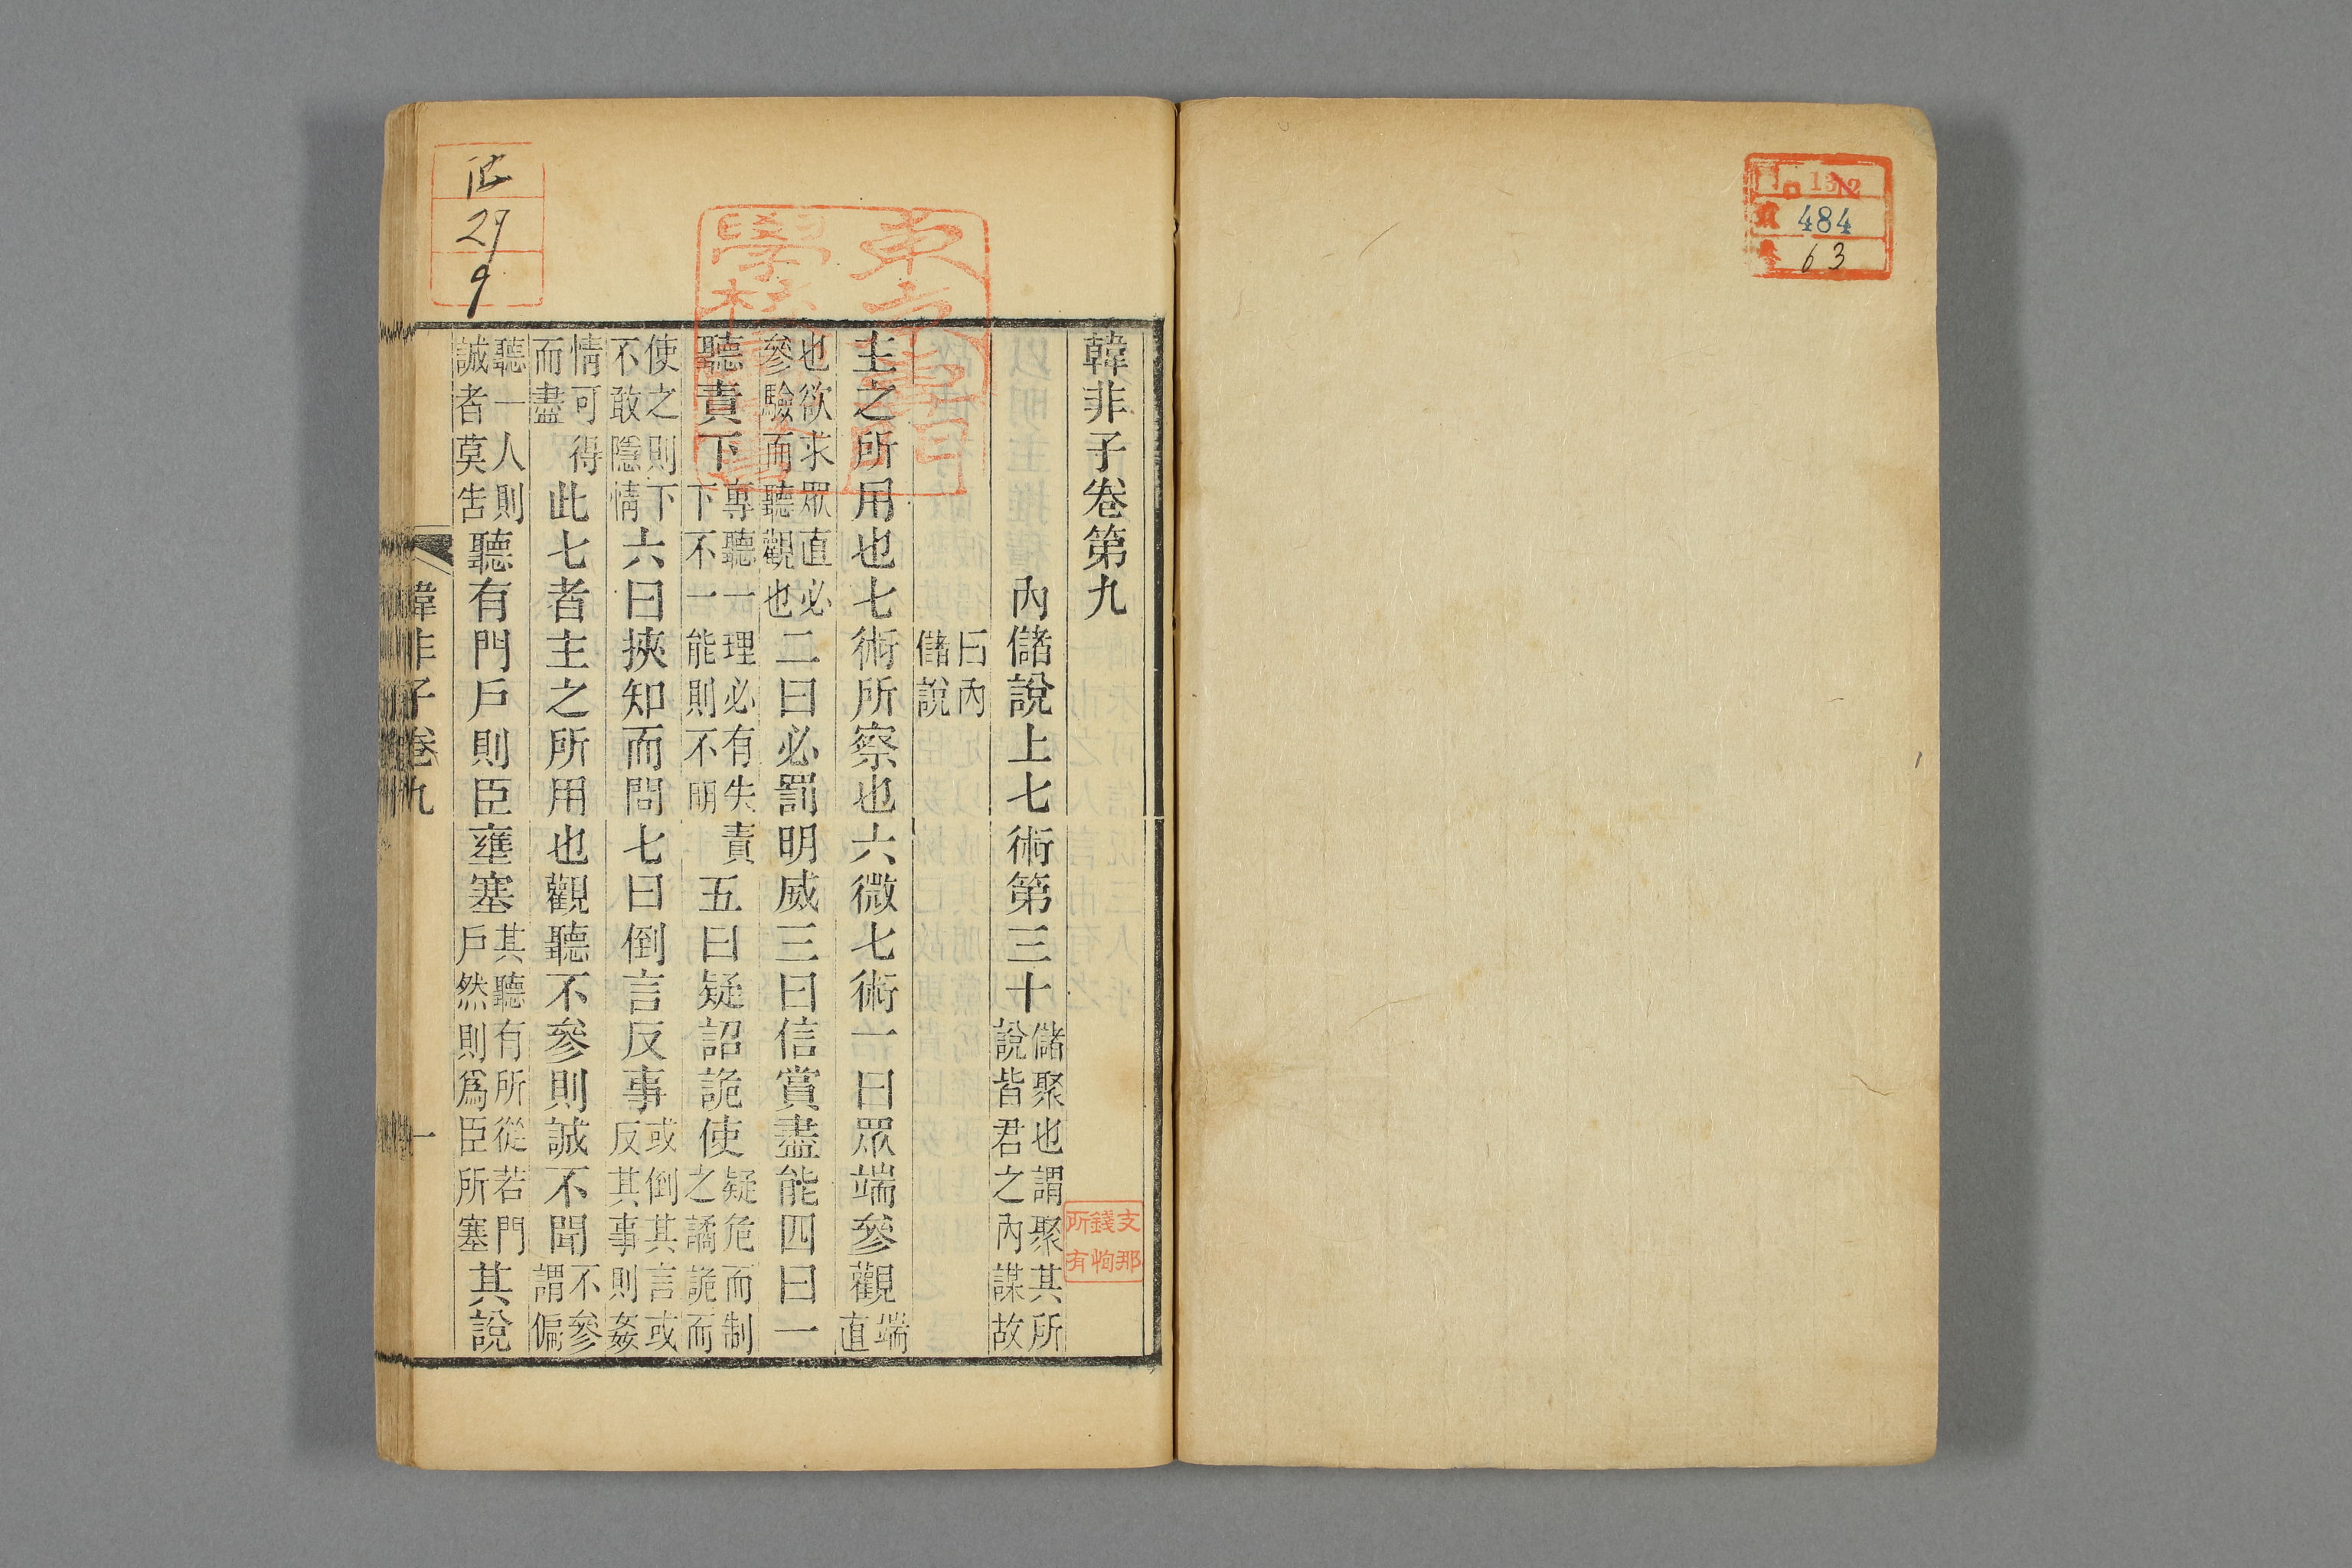 484
63
韓非子卷第九
內儲說上七術第三十儲聚也謂聚其所說皆君之內謀故
曰內儲說
主之所用也七術所察也六微七術一曰眾端參觀端直
也欲求眾直必參驗而聽觀也二曰必罰明威三曰信賞盡能四曰一
聽責下專聽一理必有失責下不一能則不明五曰疑詔詭使疑危而制之譎詭而
使之則下不敢隱情六曰挾知而問七曰倒言反事或倒其言或反其事則姦
情可得而盡此七者主之所用也觀聽不參則誠不聞不參謂偏
聽一人則誠者莫告聽有門戶則臣壅塞其聽有所從若門戶然則為臣所塞其說
韓非子卷九
一
支那
錢恂
所有
29
9